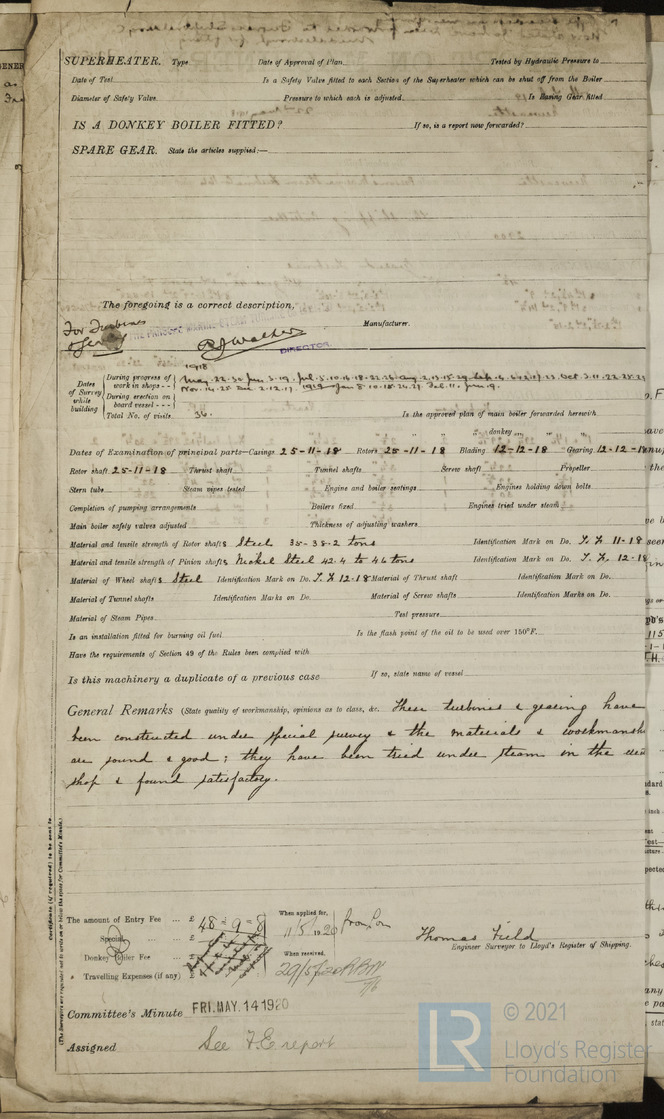 SUPERHEATER. Type Date of Approval of Plan Tested by Hydraulic Pressure to
Date of Test Is a Safety Valve fitted to each Section of the Superheater which can be shut off from the Boiler
Diameter of Safety Valve Pressure to which each is adjusted Is Easing Gear fitted
IS A DONKEY BOILER FITTED? If so, is a report now forwarded?
SPARE GEAR. State the articles supplied:—
The foregoing is a correct description,
For Turbines
Manufacturer.
DIRECTOR.
1918
Dates of Survey while building
During progress of work in shops - -
During erection on board vessel - - -
Total No. of visits 36. Is the approved plan of main boiler forwarded herewith
" " donkey " "
Dates of Examination of principal parts—Casings 25-11-18 Rotors 25-11-18 Blading 12-12-18 Gearing 12-12-18
Rotor shaft 25-11-18 Thrust shaft Tunnel shafts Screw shaft Propeller
Stern tube Steam pipes tested Engine and boiler seatings Engines holding down bolts
Completion of pumping arrangements Boilers fixed Engines tried under steam
Main boiler safety valves adjusted Thickness of adjusting washers
Material and tensile strength of Rotor shafts Steel 35-38.2 tons Identification Mark on Do. T.F. 11-18
Material and tensile strength of Pinion shafts Nickel Steel 42.4 to 46 tons Identification Mark on Do. T.F. 12-18
Material of Wheel shafts Steel Identification Mark on Do. T.F. 12-18 Material of Thrust shaft Identification Mark on Do.
Material of Tunnel shafts Identification Marks on Do. Material of Screw shafts Identification Marks on Do.
Material of Steam Pipes Test pressure
Is an installation fitted for burning oil fuel Is the flash point of the oil to be used over 150°F.
Have the requirements of Section 49 of the Rules been complied with
Is this machinery a duplicate of a previous case If so, state name of vessel
General Remarks (State quality of workmanship, opinions as to class, &c. These turbines & gearing have
been constructed under special survey & the materials & workmansh
are sound & good; they have been tried under steam in the
shop & found satisfactory.
Certificate (if required) to be sent to
(The Surveyors are requested not to write on or below the space for Committee's Minute.)
The amount of Entry Fee ... £ 48 = 9 = 8 When applied for, 11/5/1920
Special ... £
Donkey Boiler Fee ... £ When received,
Travelling Expenses (if any) £ 29/5/20
Thomas Field
Engineer Surveyor to Lloyd's Register of Shipping.
Committee's Minute FRI. MAY. 14 1920
Assigned See F.E. report
© 2021
LR Lloyd's Register
Foundation